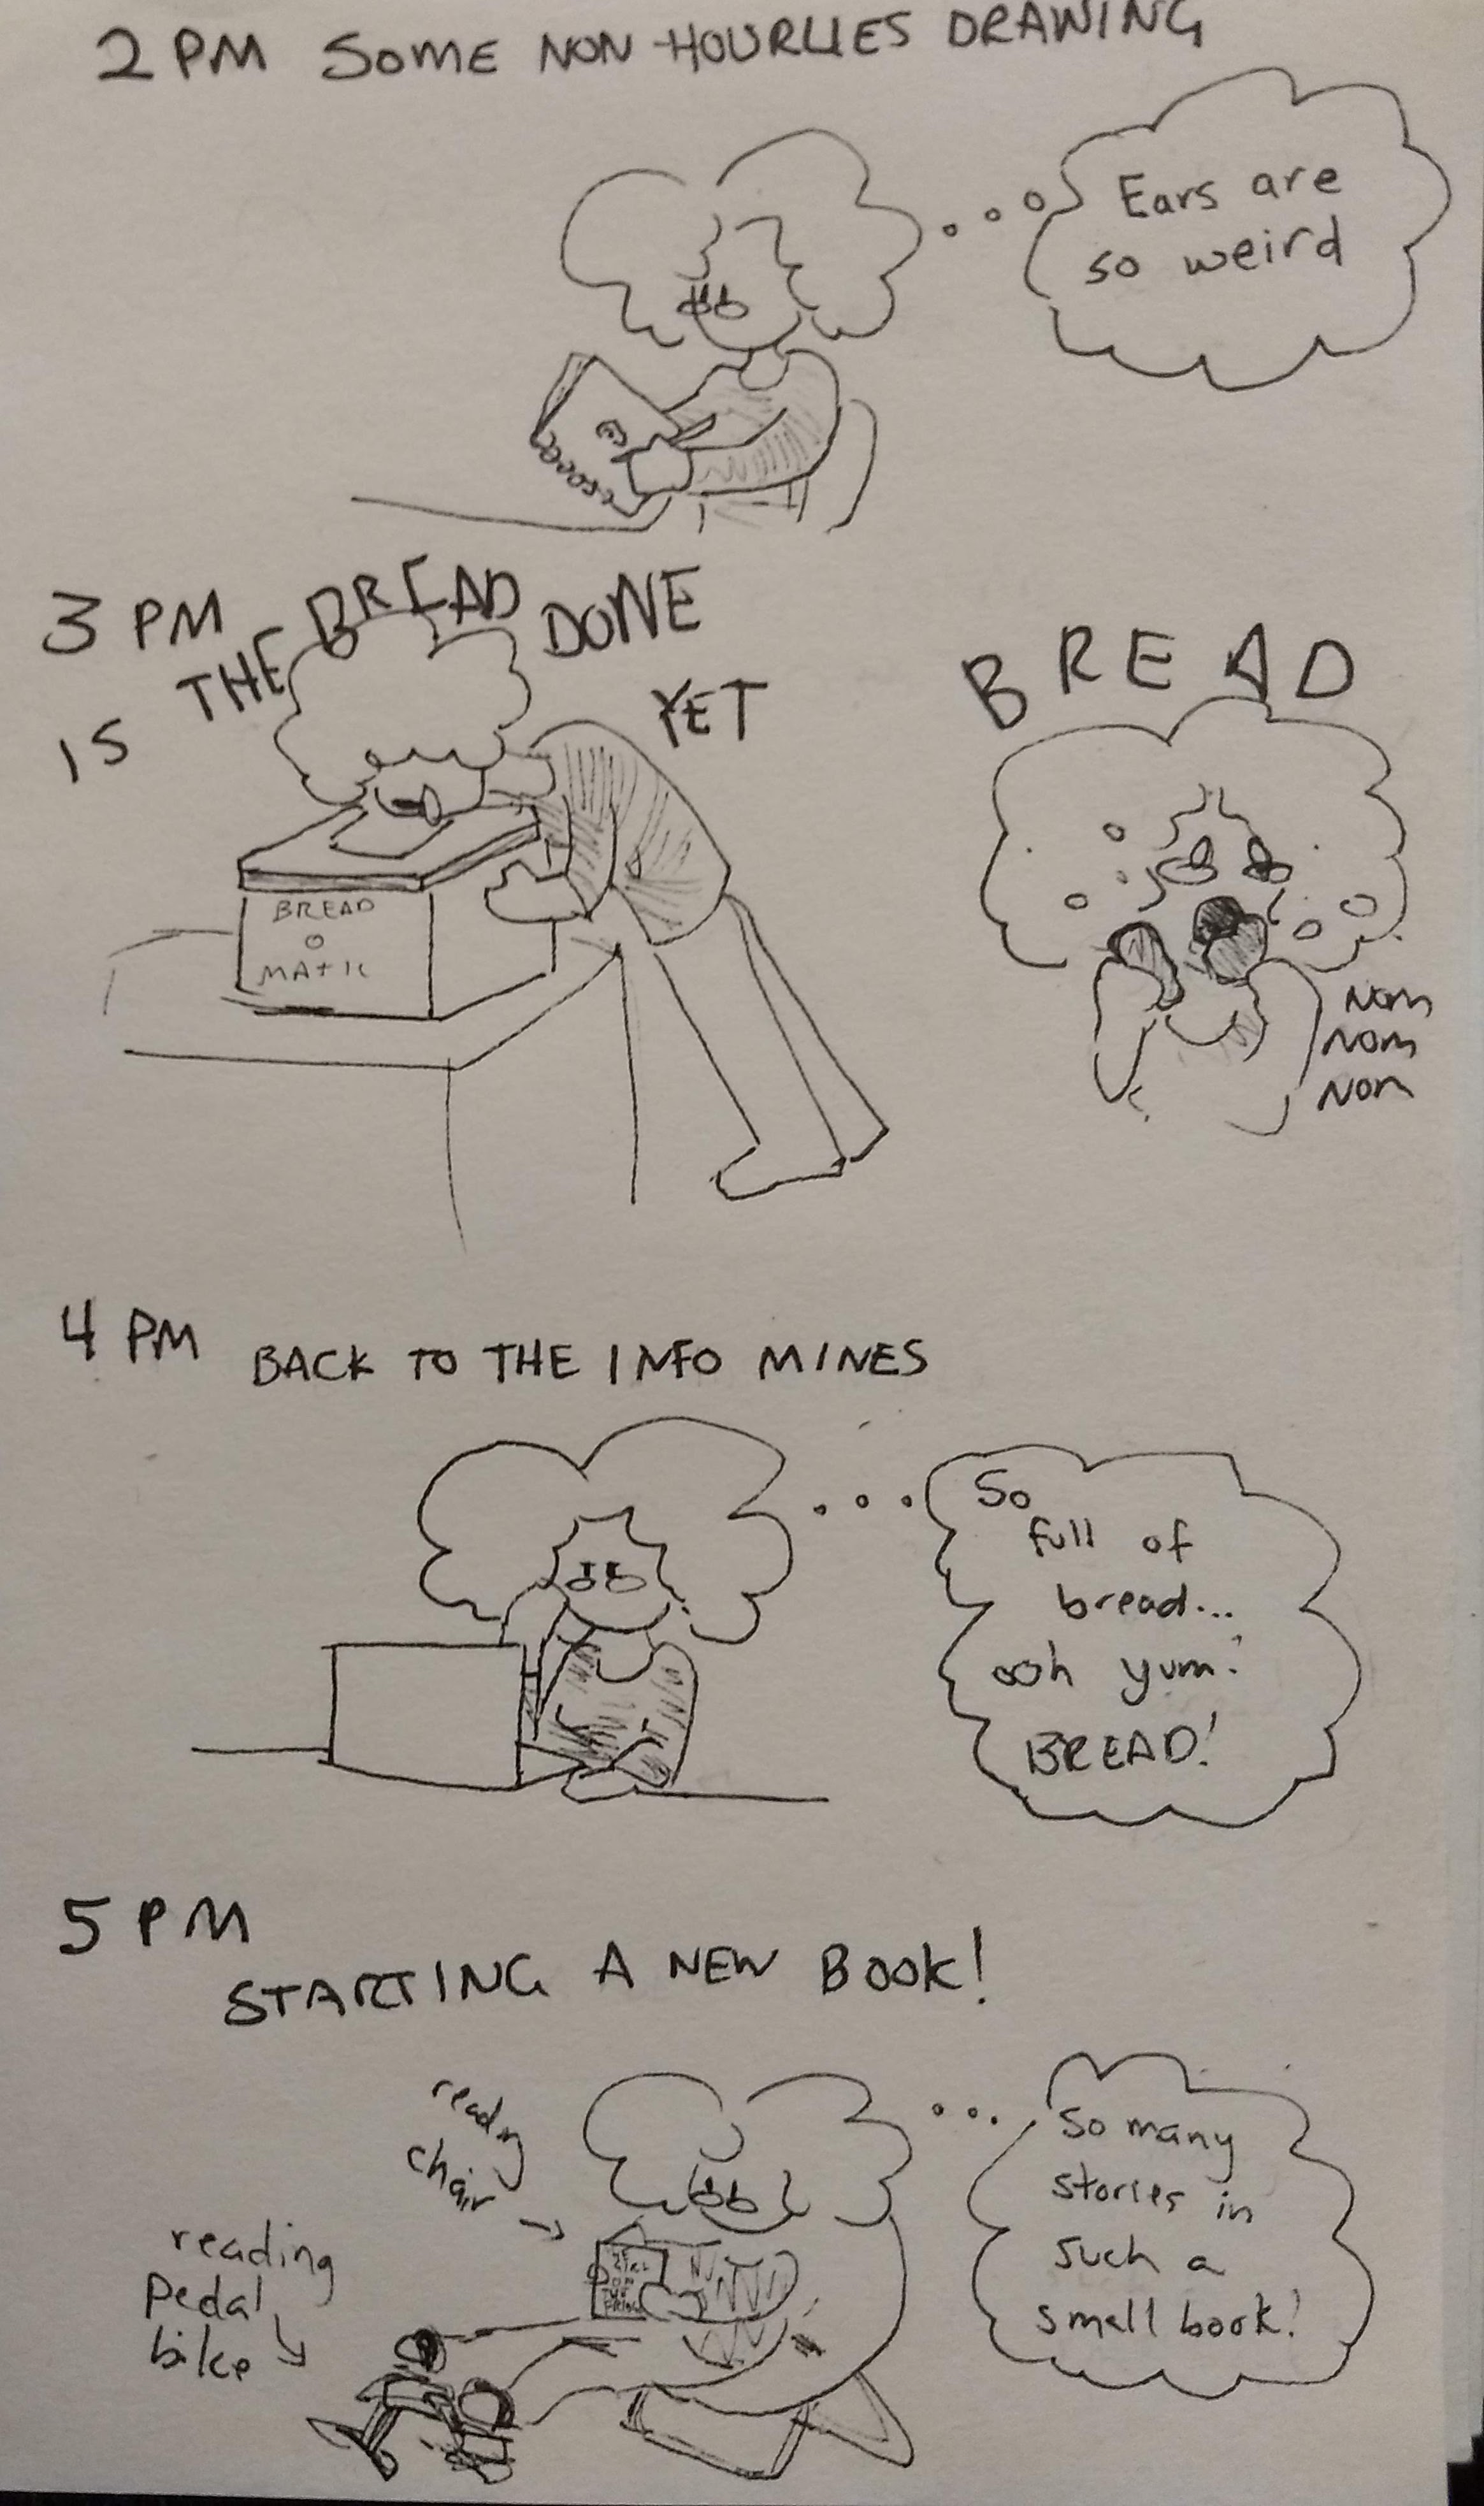 2 PM SOME NON-HOURLIES DRAWING
Ears are
so weird
3 PM
IS THE BREAD DONE YET
BREAD
O
MATIC
BREAD
Nom
Nom
Nom
4 PM BACK TO THE INFO MINES
So
full of
bread...
ooh yum!
BREAD!
5 PM
STARTING A NEW BOOK!
reading
chair
So many
stories in
such a
small book!
reading
Pedal
bike